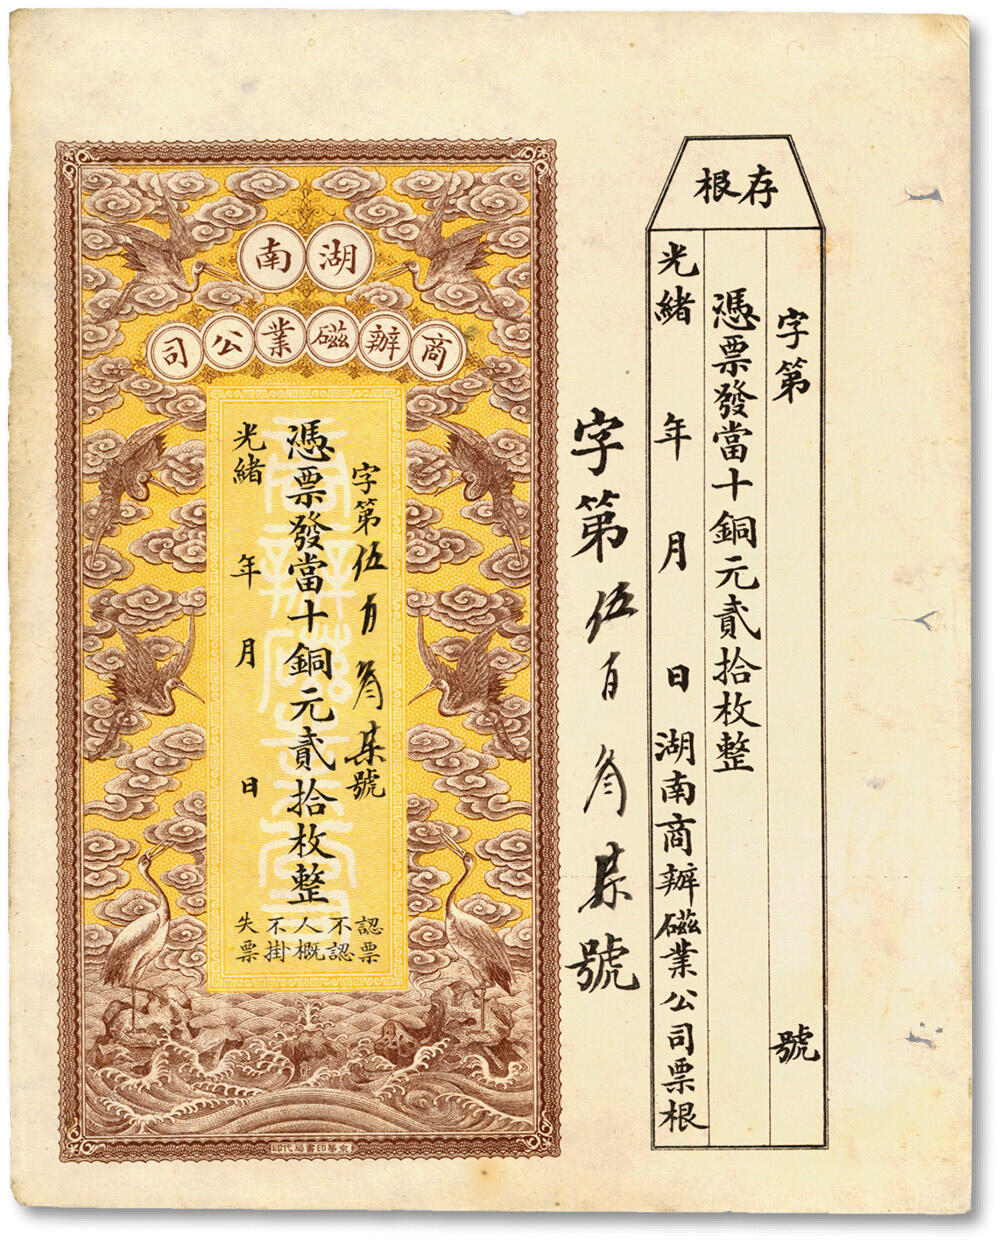 存根
字第 號
憑票發當十銅元貳拾枚整
光緒 年 月 日 湖南商辦磁業公司票根
字第伍百叁柒號
湖南
商辦磁業公司
字第伍百叁柒號
憑票發當十銅元貳拾枚整
光緒 年 月 日
認票
不認
人概
不掛
失票
京華印書局代印